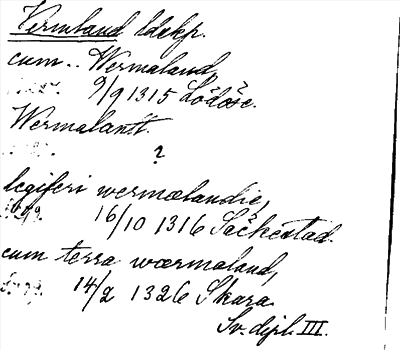 Vermland ldskp.
cum .. Wermaland,
9/9 1315 Lödöse.
Wermalantt.
?
legiferi wermælandie,
16/10 1316 Säckestad.
cum terra wærmaland,
14/2 1326 Skara.
Sv. dipl. III.